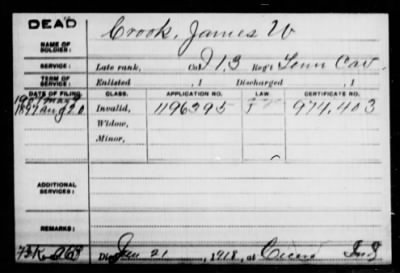 DEAD
NAME OF SOLDIER: Crook, James W
SERVICE: Late rank, Co. I 13 Reg't Tenn Cav.
TERM OF SERVICE: Enlisted , 1 Discharged , 1
DATE OF FILING. CLASS. APPLICATION NO. LAW. CERTIFICATE NO.
1897 Aug 20 Invalid, 1196395 974.403
Widow,
Minor,
ADDITIONAL SERVICES:
REMARKS:
Died Jan 21, 1918, at Cicero Ind